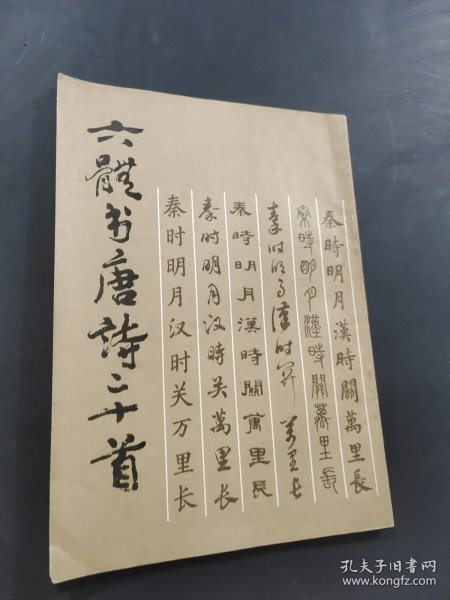 六體书唐诗二十首
秦時明月漢時關萬里長
秦時明月漢時關萬里長
秦时明月漢时关万里长
秦時明月漢時關萬里長
秦时明月汉時关萬里长
秦时明月汉时关万里长
孔夫子旧书网
www.kongfz.com